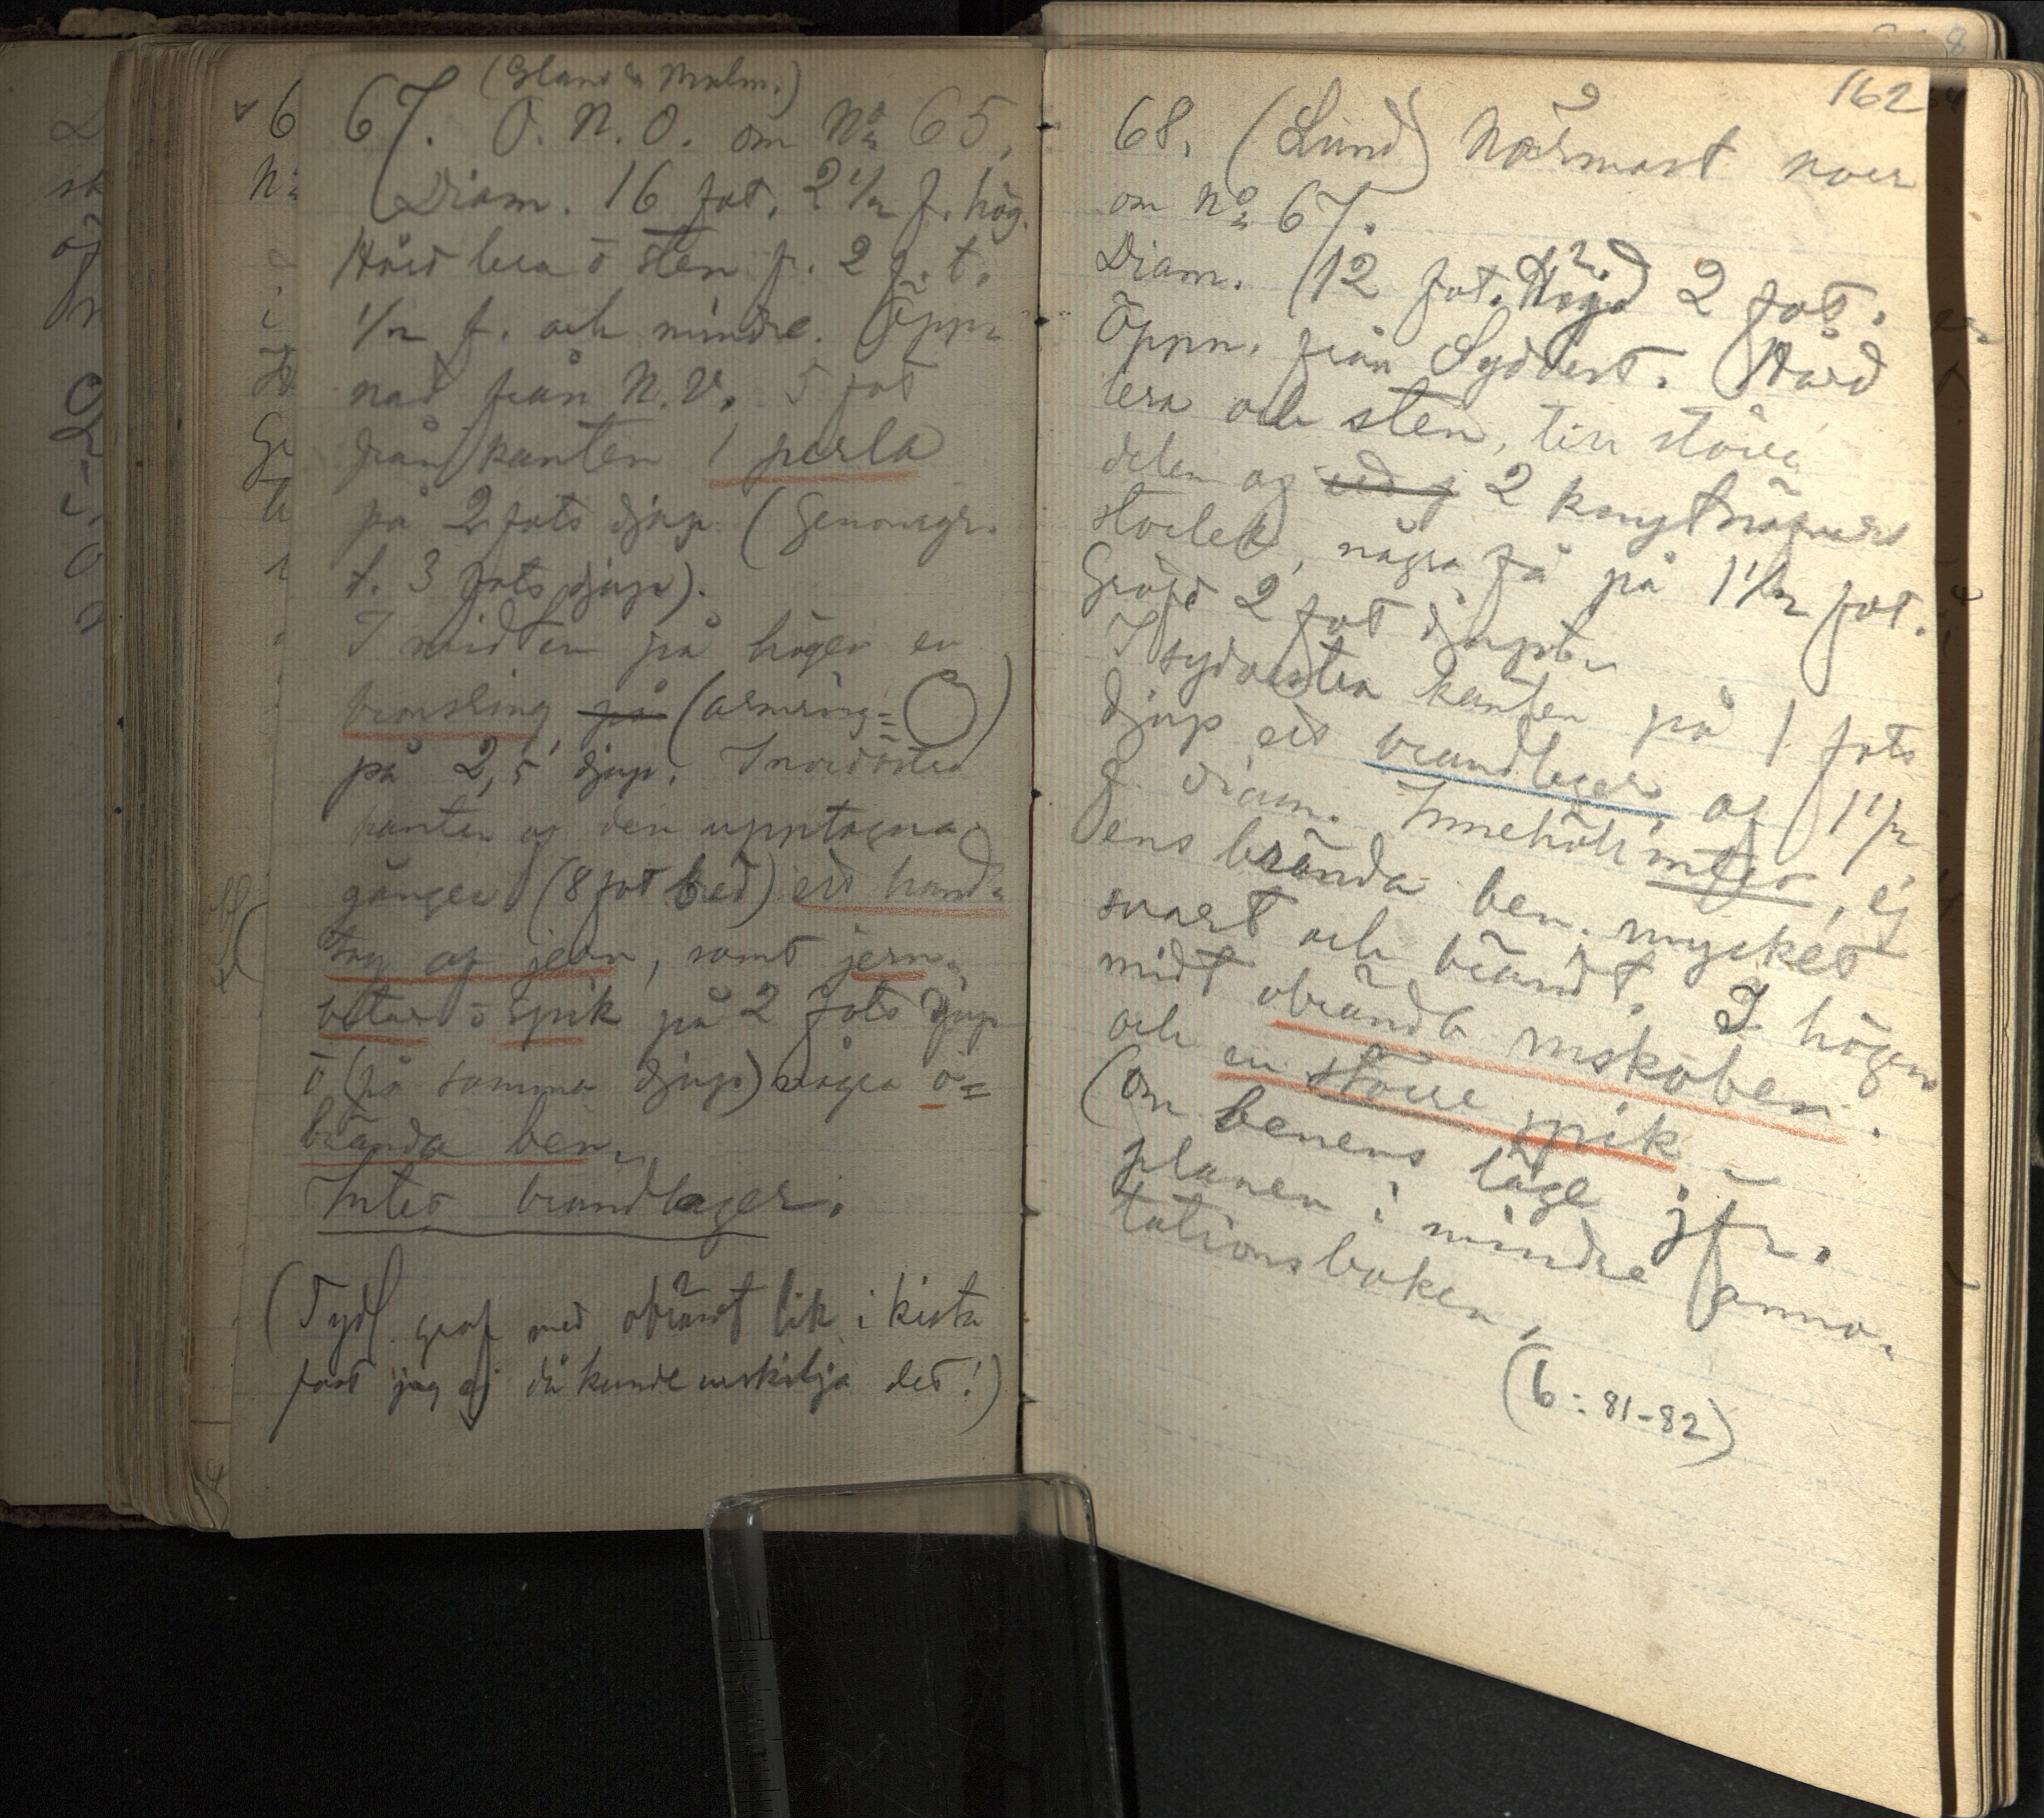 67. O. N. O. om No 65.
Diam. 16 fot. 2 1/2 f. hög.
Hård lera o sten f. 2 f. t.
1/2 f. och mindre. Öpp-
nad från N.V. 5 fot
från kanten 1 perla
på 2 fots djup. (Genomgr.
t. 3 fots djup).
I midten på högen en
bronsring på (armring= )
på 2,5' djup. I nordöstra
kanten af den upptagna
gången (8 fot bred) ett hand-
tag af jern, samt jern-
bitar o spik på 2 fots djup
o (på samma djup) några o=
brända ben.
Intet brandlager.
(Tydl. graf med obrändt lik i kista
fast jag ej då kunde urskilja det!)
162
68. (Lund) Närmast norr
om No 67.
Diam. 12 fot. Höjd 2 fot.
Öppn. från Sydvest. Hård
lera och sten, till större
delen af 2 knytnäfvars
storlek, några få på 1 1/2 fot.
Gräfd 2 fot djupt.
I sydvestra kanten på 1 fots
djup ett brandlager af 1 1/2
f. diam. Innehöll intet, ej
ens brända ben. mycket
svart och brändt. I högens
midt obrända mskoben.
och en större spik
(om benens läge jfr.
planen i mindre anno-
tationsboken.
(6: 81-82)